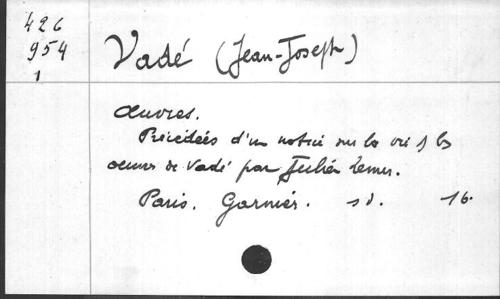 426
954
1
Vadé (Jean-Joseph)
Œuvres.
Précédées d'un notice sur la vie & les
œuvres de Vadé par Julien Lemer.
Paris. Garnier. s d. 16.